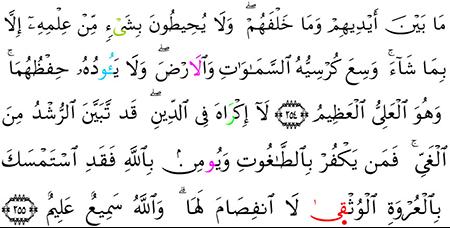 مَا بَيْنَ أَيْدِيهِمْ وَمَا خَلْفَهُمْ ۖ وَلَا يُحِيطُونَ بِشَىْءٍ مِّنْ عِلْمِهِۦٓ إِلَّا
بِمَا شَآءَ ۚ وَسِعَ كُرْسِيُّهُ ٱلسَّمَٰوَٰتِ وَٱلَارْضَ ۖ وَلَا يَـُٔودُهُۥ حِفْظُهُمَا ۚ
وَهُوَ ٱلْعَلِىُّ ٱلْعَظِيمُ ٢٥٤ لَآ إِكْرَاهَ فِى ٱلدِّينِ ۖ قَد تَّبَيَّنَ ٱلرُّشْدُ مِنَ
ٱلْغَىِّ ۚ فَمَن يَكْفُرْ بِٱلطَّٰغُوتِ وَيُومِنۢ بِٱللَّهِ فَقَدِ ٱسْتَمْسَكَ
بِٱلْعُرْوَةِ ٱلْوُثْقَىٰ لَا ٱنفِصَامَ لَهَا ۗ وَٱللَّهُ سَمِيعٌ عَلِيمٌ ٢٥٥